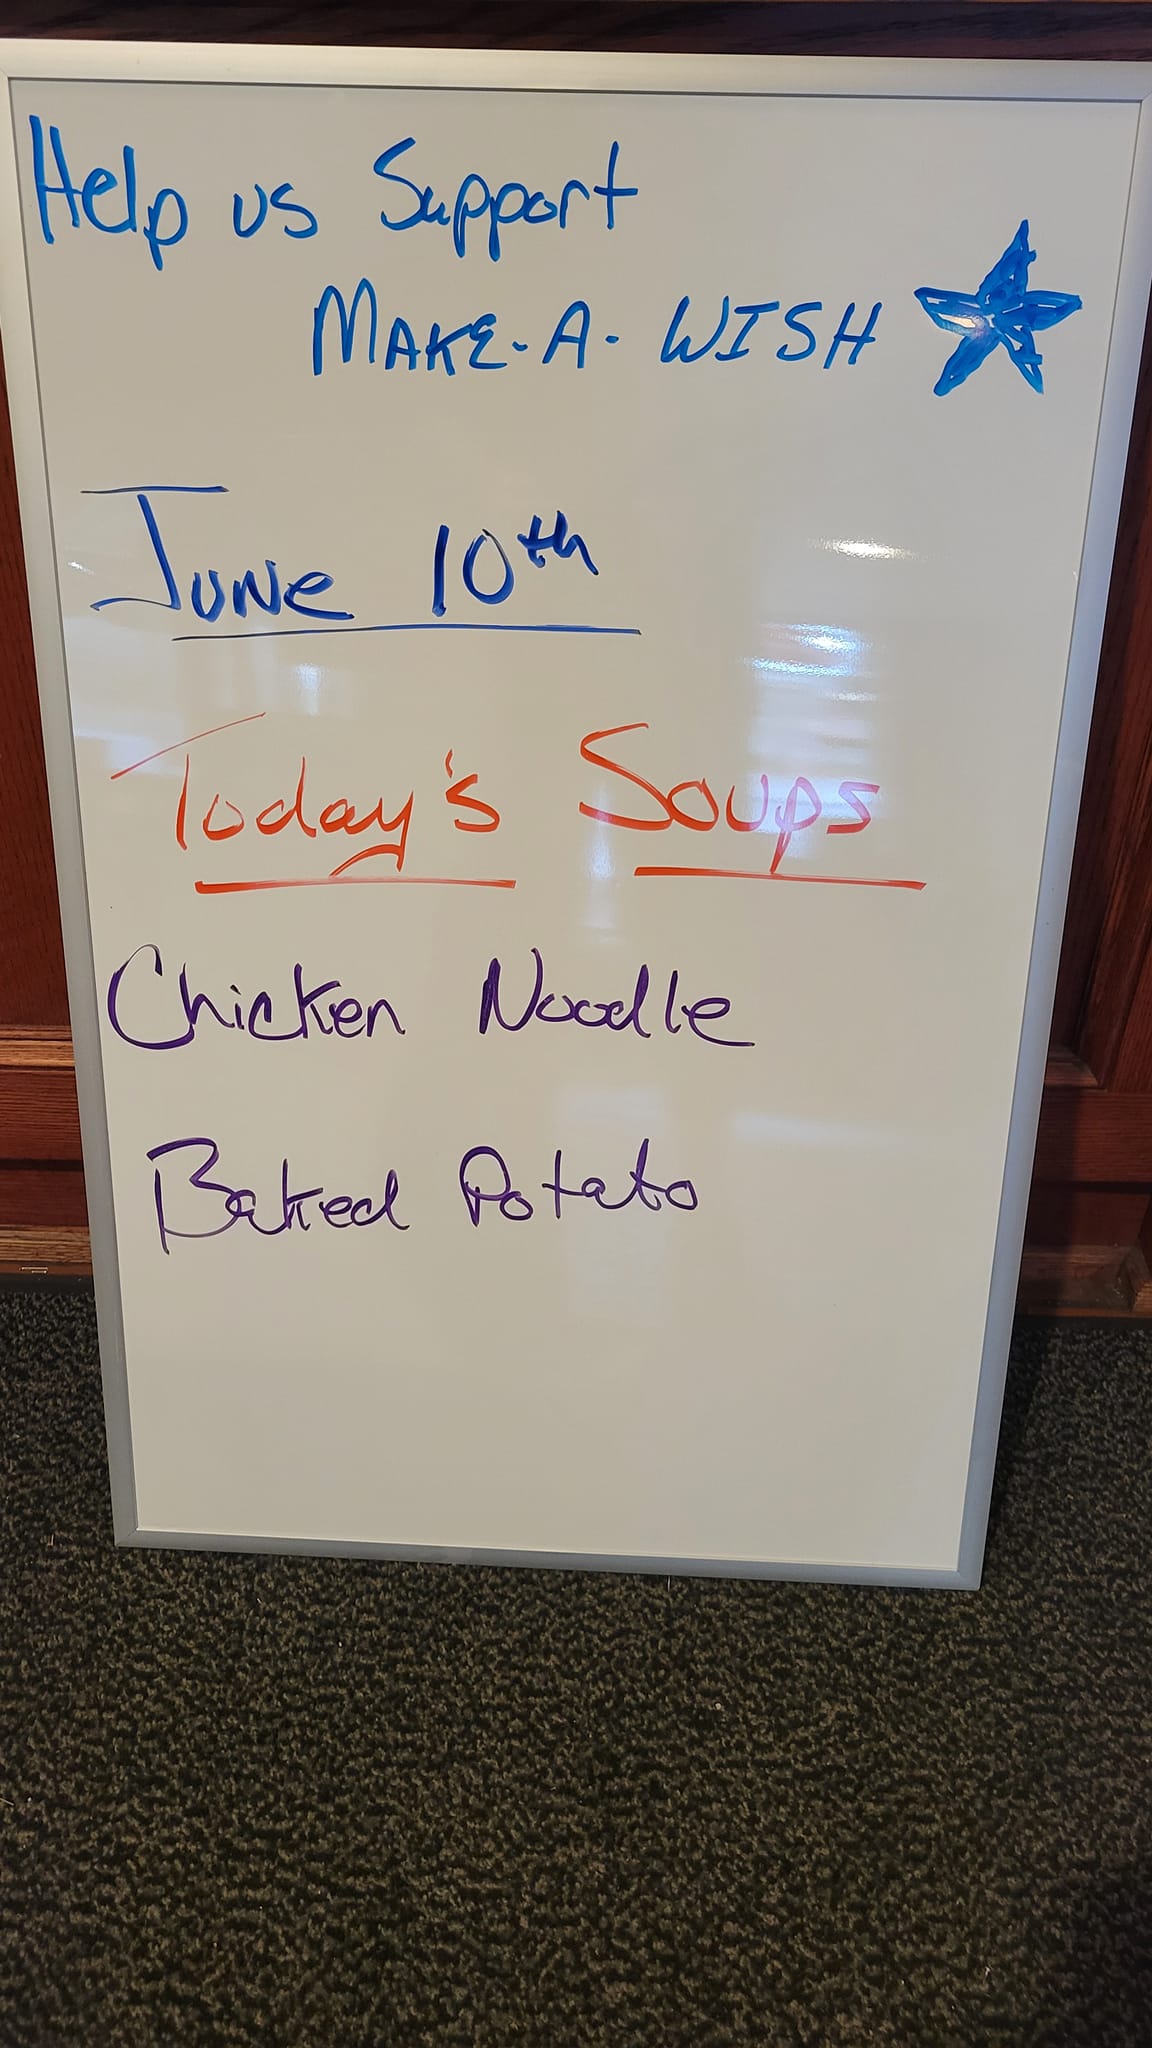 Help us Support
MAKE-A-WISH
June 10th
Today's Soups
Chicken Noodle
Baked Potato